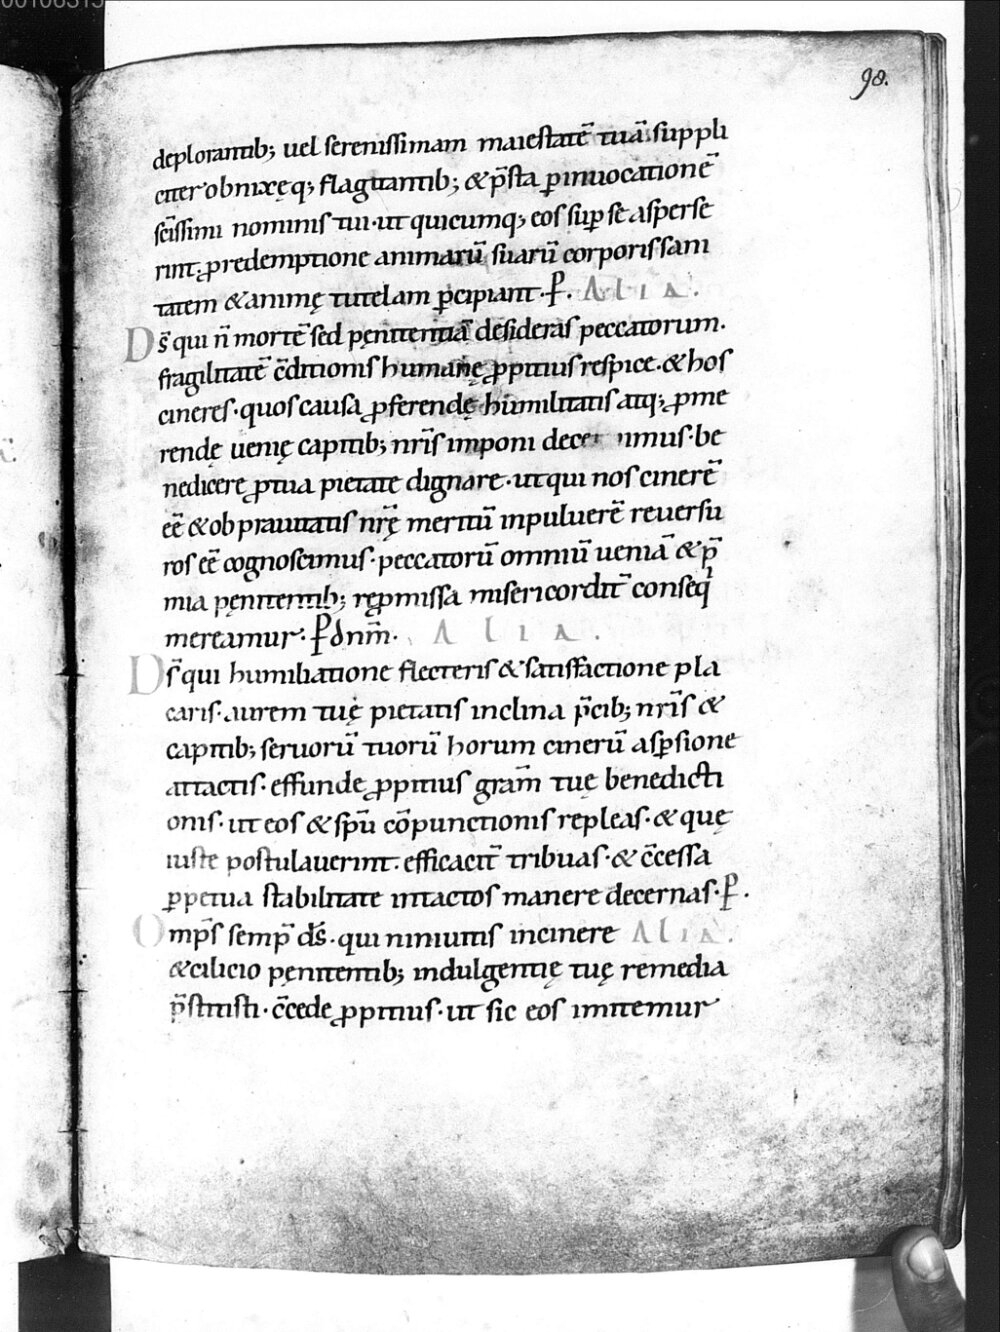 00108315
98.
deplorantib; uel serenissimam maiestatē tuā suppli
citer obnixęq; flagitantib; & p̄sta ꝑ inuocationē
sc̄issimi nominis tui · ut quicumq; eos sup̱ se asperse
rint · ꝓ redemptione animarū suarū corporis sani
tatem & animę tutelam ꝑcipiant · ꝑ. ALIA.
Ds̄ qui n̄ mortē sed pęnitentiā desideras peccatorum.
fragilitatē c̄ditionis humanę ꝓpitius respice · & hos
cineres · quos causa ꝓferendę humilitatis atq; ꝓme
rendę uenię capitib; nr̄is imponi decernimus · be
nedicere ꝓ tua pietate dignare · ut qui nos cinerē
eē & ob prauitatis nr̄ę meritū in puluerē reuersu
ros eē cognoscimus · peccatorū omniū ueniā & p̄
mia pęnitentib; ręp̱missa misericordit̄ conseq̄
mereamur · ꝑ dnm̄. ALIA.
Ds̄ qui humiliatione flecteris & satisfactione pla
caris · aurem tuę pietatis inclina p̄cib; nr̄is &
capitib; seruorū tuorū horum cinerū asp̱sione
attactis · effunde ꝓpitius gram̄ tuę benedicti
onis · ut eos & sp̄u cōpunctionis repleas · & quę
iuste postulauerint · efficacit̄ tribuas · & c̄cessa
ꝑpetua stabilitate intactos manere decernas · ꝑ.
Omp̄s semp̄ ds̄ · qui niniuitis in cinere ALIA.
& cilicio pęnitentib; indulgentię tuę remedia
p̄stitisti · c̄cede ꝓpitius · ut sic eos imitemur